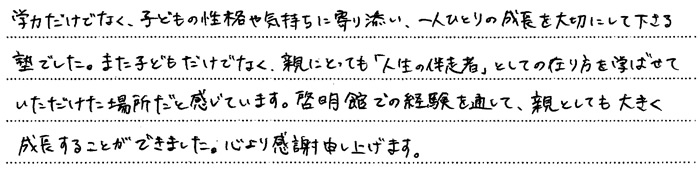 学力だけでなく、子どもの性格や気持ちに寄り添い、一人ひとりの成長を大切にして下さる
塾でした。また子どもだけでなく、親にとっても「人生の伴走者」としての在り方を学ばせて
いただけた場所だと感じています。啓明館での経験を通して、親としても大きく
成長することができました。心より感謝申し上げます。